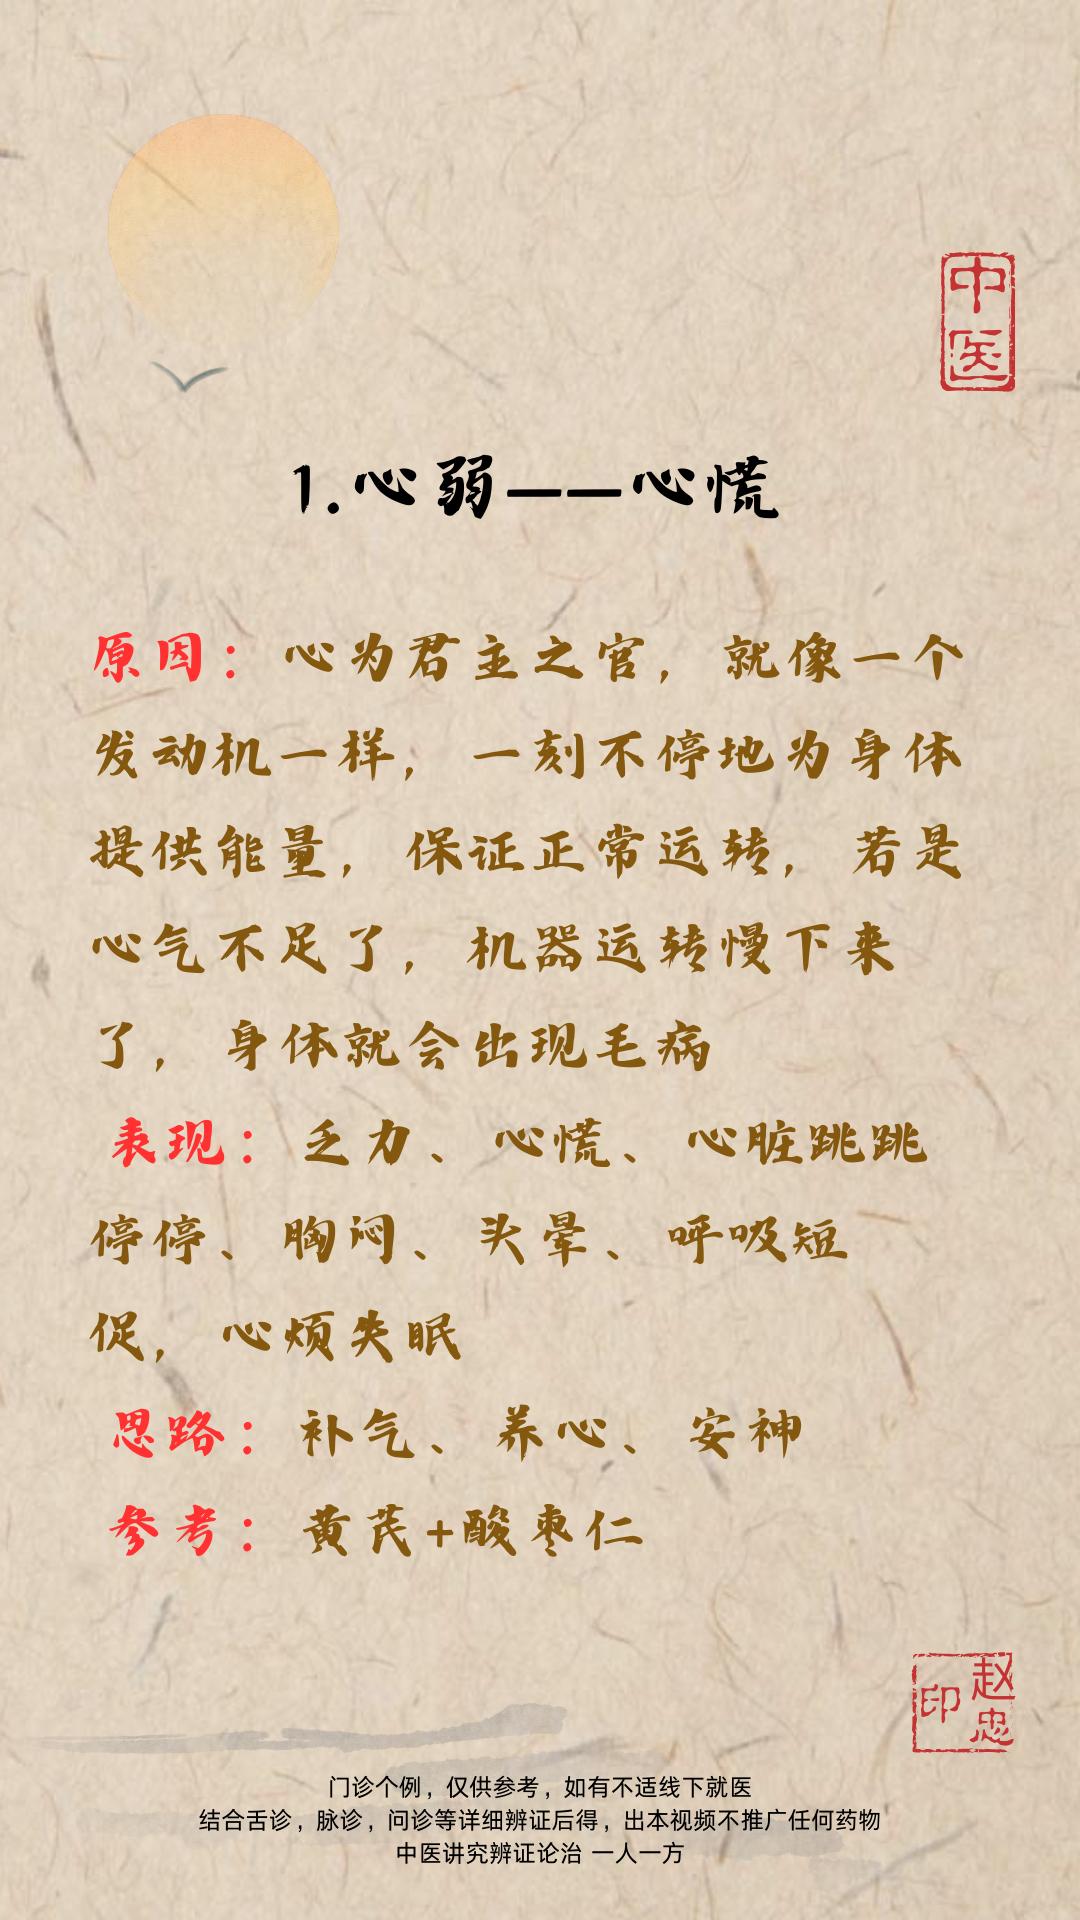 中医
1.心弱——心慌
原因：心为君主之官，就像一个
发动机一样，一刻不停地为身体
提供能量，保证正常运转，若是
心气不足了，机器运转慢下来
了，身体就会出现毛病
表现：乏力、心慌、心脏跳跳
停停、胸闷、头晕、呼吸短
促，心烦失眠
思路：补气、养心、安神
参考：黄芪+酸枣仁
赵忠印
门诊个例，仅供参考，如有不适线下就医
结合舌诊，脉诊，问诊等详细辨证后得，出本视频不推广任何药物
中医讲究辨证论治 一人一方